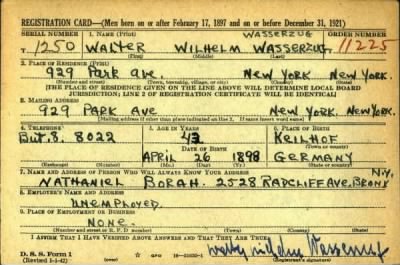 REGISTRATION CARD—(Men born on or after February 17, 1897 and on or before December 31, 1921)
SERIAL NUMBER 1. NAME (Print) WASSERZUG ORDER NUMBER
T 1250 WALTER WILHELM WASSERZUG 11225
(First) (Middle) (Last)
2. PLACE OF RESIDENCE (Print)
929 Park Ave. New York. New York.
(Number and street) (Town, township, village, or city) (County) (State)
[THE PLACE OF RESIDENCE GIVEN ON THE LINE ABOVE WILL DETERMINE LOCAL BOARD
JURISDICTION; LINE 2 OF REGISTRATION CERTIFICATE WILL BE IDENTICAL]
3. MAILING ADDRESS
929 PARK AVE. New York. New York.
[Mailing address if other than place indicated on line 2. If same insert word same]
4. TELEPHONE 5. AGE IN YEARS 6. PLACE OF BIRTH
But. 8. 8022 43 KEILHOF
DATE OF BIRTH
APRIL 26 1898 GERMANY
(Exchange) (Number) (Mo.) (Day) (Yr.) (State or country)
7. NAME AND ADDRESS OF PERSON WHO WILL ALWAYS KNOW YOUR ADDRESS N.Y.
NATHANIEL BORAH. 2528 RADCLIFF AVE, BRONX
8. EMPLOYER'S NAME AND ADDRESS
UNEMPLOYED.
9. PLACE OF EMPLOYMENT OR BUSINESS
NONE
(Number and street or R. F. D. number) (Town) (County) (State)
I AFFIRM THAT I HAVE VERIFIED ABOVE ANSWERS AND THAT THEY ARE TRUE.
D. S. S. Form 1
(Revised 4-1-42) (over) GPO (Registrant's signature)
Wilhelm Wasserzug